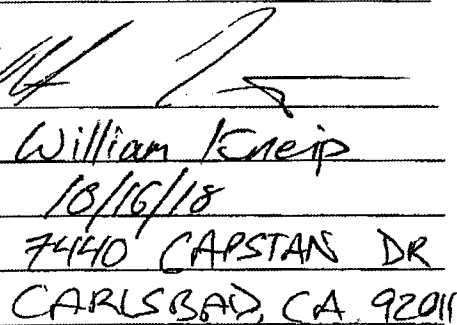 William Kneip
10/16/18
7440 CAPSTAN DR
CARLSBAD, CA 92011